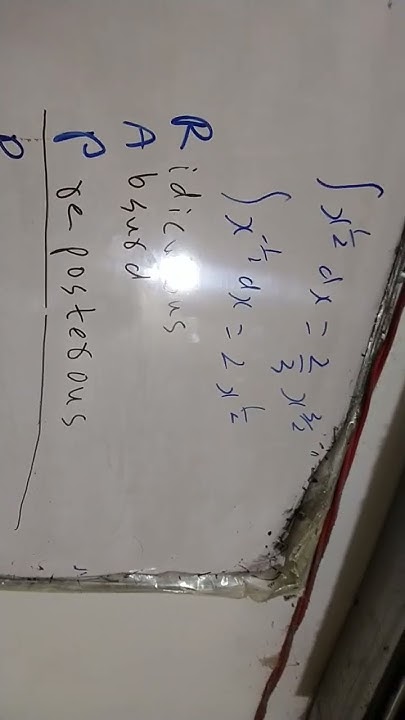 ∫ x^{1/2} dx = 2/3 x^{3/2}
∫ x^{-1/2} dx = 2 x^{1/2}
Ridiculous
Absurd
Preposterous